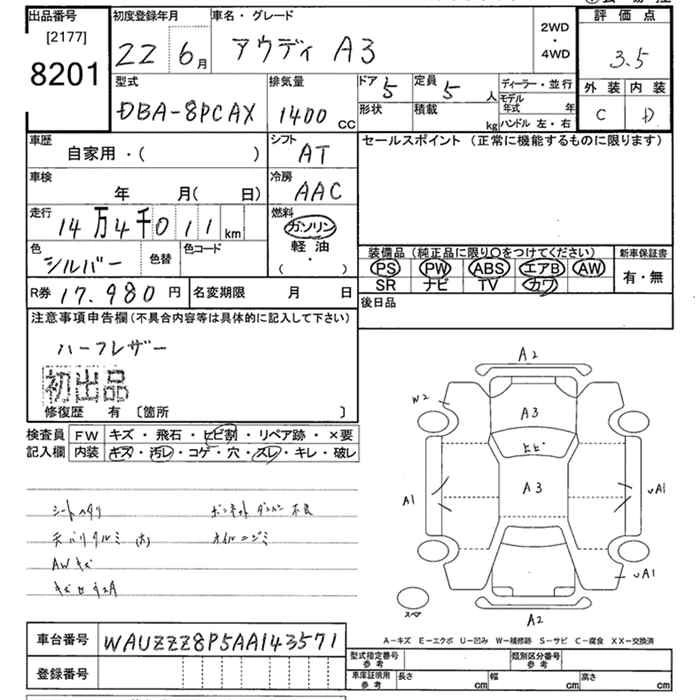 出品番号
[2177]
8201
初度登録年月
22 6月
車名・グレード
アウディ A3
2WD
・
4WD
評価点
3.5
外装 内装
C D
型式
DBA-8PCAX
排気量
1400 CC
ドア 5
形状
定員 5 人
積載 kg
ディーラー・並行
モデル年式 年
ハンドル 左・右
車歴
自家用・( )
シフト
AT
セールスポイント (正常に機能するものに限ります)
車検
年 月( 日)
冷房
AAC
走行
14万4千011km
燃料
ガソリン
軽油
( ・ )
色
シルバー
色替
色コード
装備品(純正品に限り○をつけてください)
PS PW ABS エアB AW
SR ナビ TV カワ
新車保証書
有・無
R券 17.980円
名変期限 月 日
後日品
注意事項申告欄(不具合内容等は具体的に記入して下さい)
ハーフレザー
初出品
修復歴 有 〔箇所 〕
検査員記入欄
FW キズ・飛石・ヒビ割・リペア跡・×要
内装 キズ・汚レ・コゲ・穴・スレ・キレ・破レ
シートヘタリ
天バリタルミ (大)
AWキズ
ボンネットダンパー不良
オイルニジミ
A2
W2
A3
ヒビ
A1
A3
∪A1
∪A1
スペア
A2
A-キズ E-エクボ U-凹み W-補修跡 S-サビ C-腐食 XX-交換済
車台番号
WAUZZZ8P5AA143571
登録番号
型式指定番号
参考
類別区分番号
参考
車庫証明用
参考
長さ cm
幅 cm
高さ cm